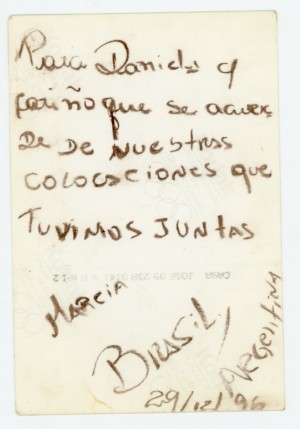 Para Daniela y
cariño que se acuer-
DE DE NUESTRAS
COLOCACIONES QUE
TUVIMOS JUNTAS
MARCIA
BRASIL
ARGENTINA
29/12/96